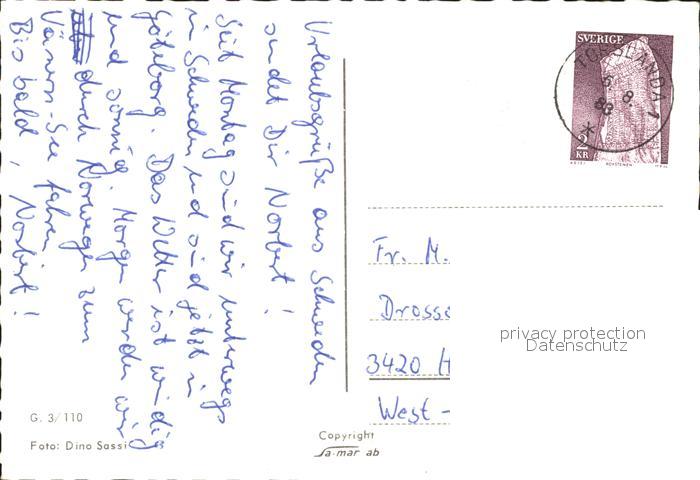 Urlaubsgrüße aus Schweden
sendet Dir Norbert!
Seit Montag sind wir unterwegs
in Schweden und sind jetzt in
Göteborg. Das Wetter ist windig
und sonnig. Morgen werden wir
durch Norwegen zum
Vänern-See fahren.
Bis bald, Norbert!
SVERIGE
TORSLANDA 1
5
8.
88
2
KR
RÖKSTENEN
Fr. M.
Dross
3420 H
West-
privacy protection
Datenschutz
G. 3/110
Foto: Dino Sassi
Copyright
Sa-mar ab